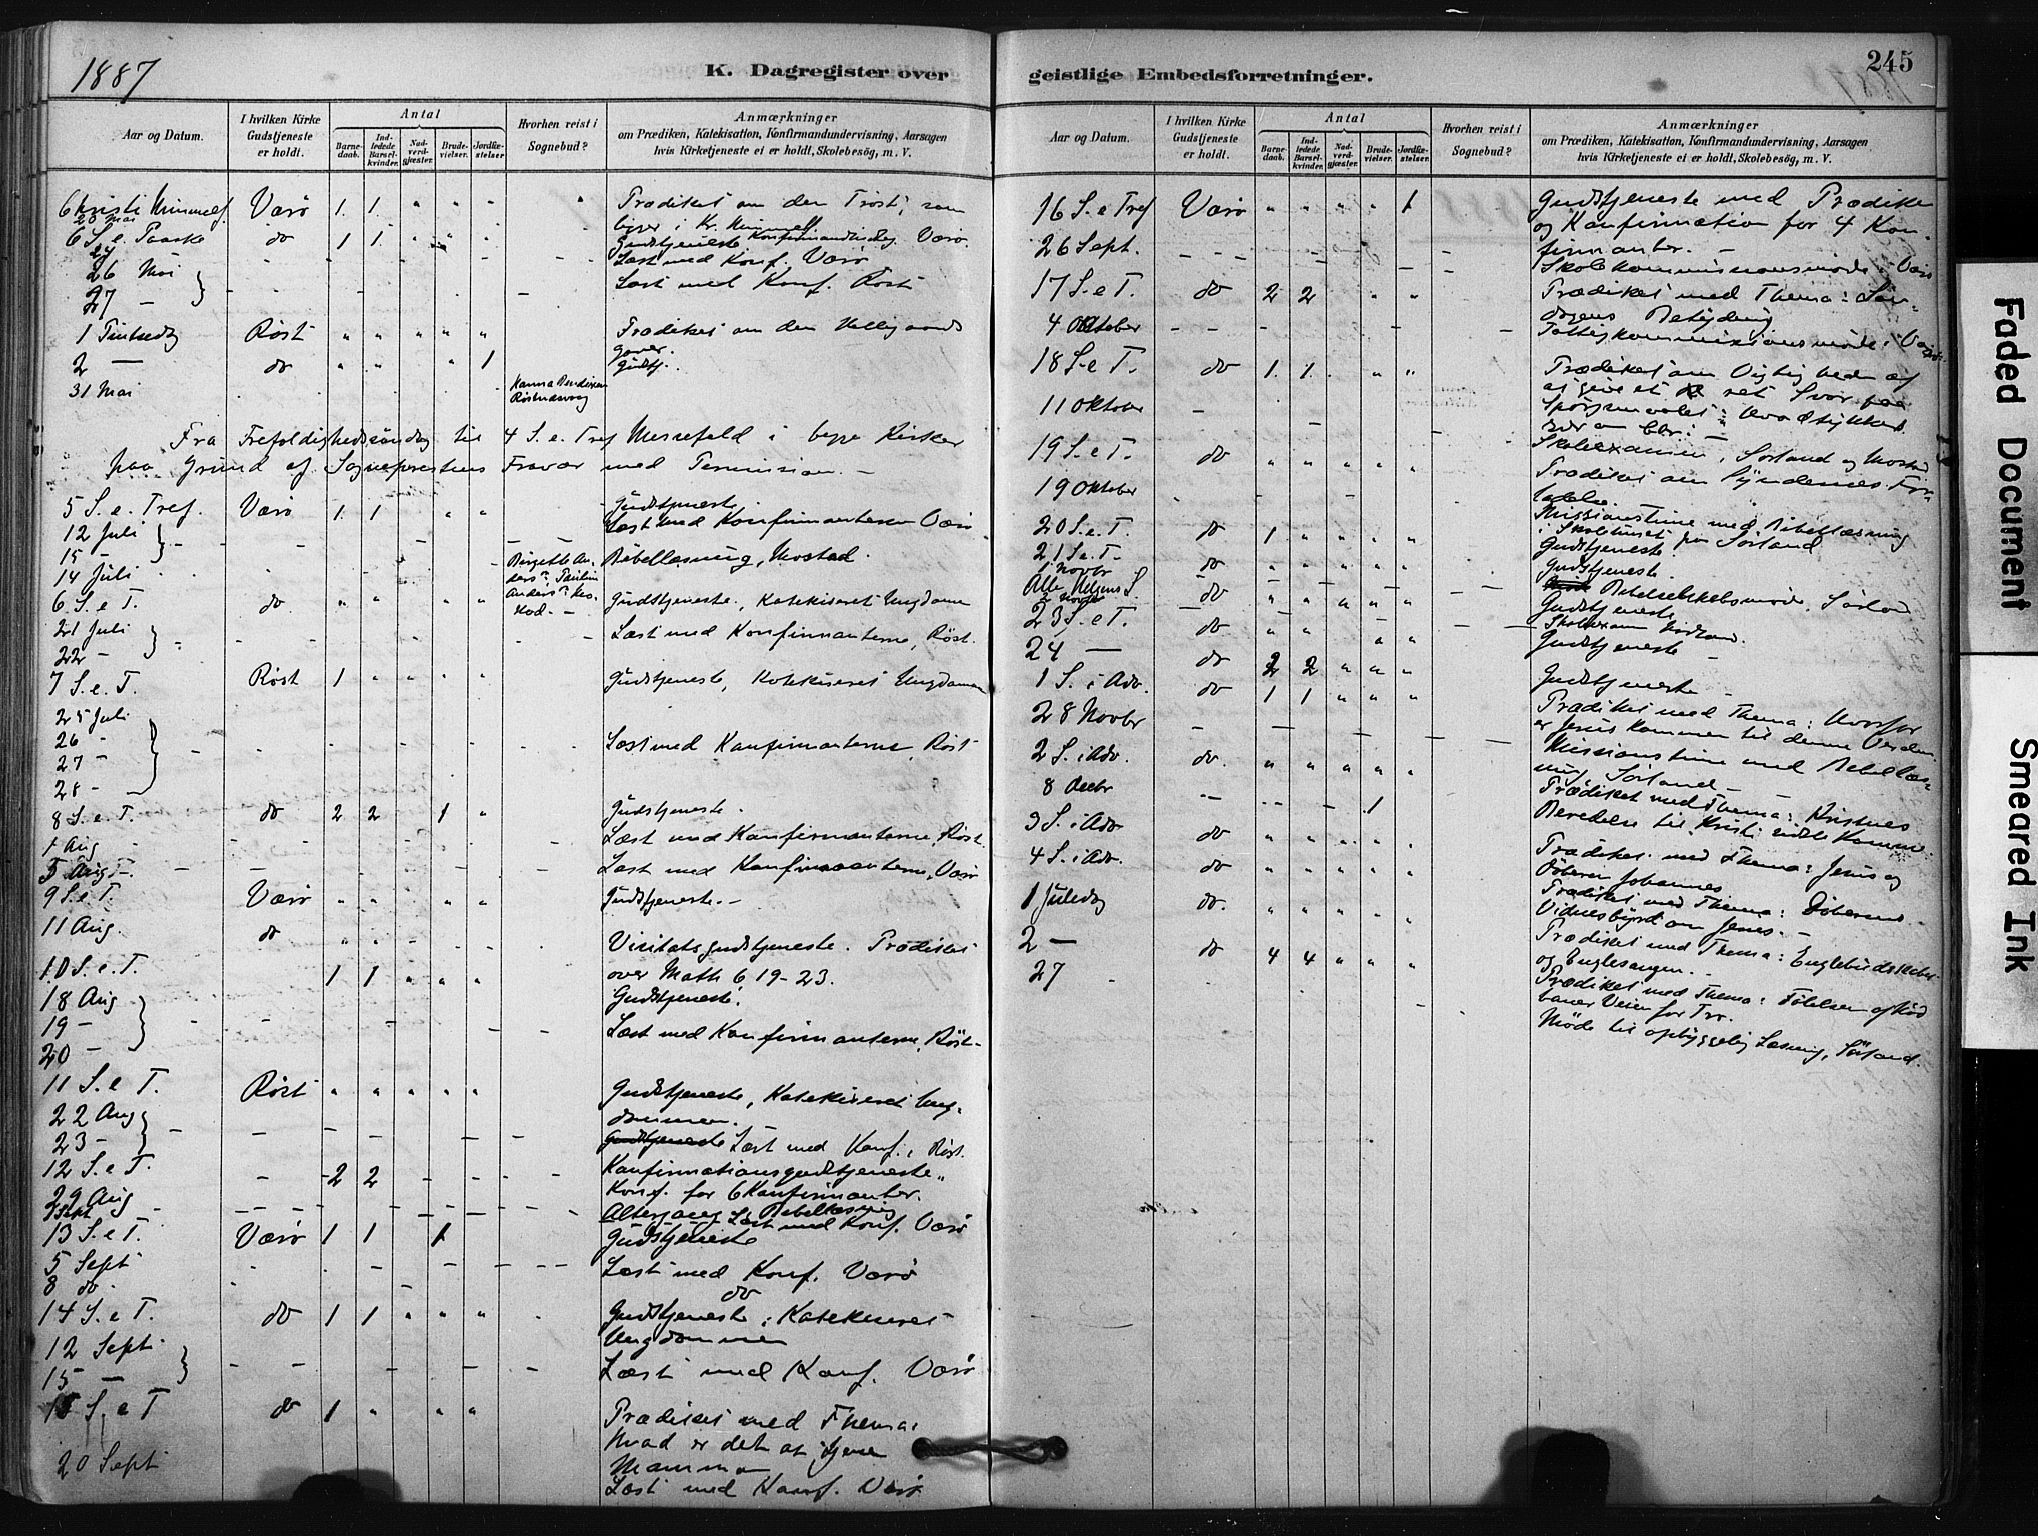 1887
K. Dagregister over
Aar og Datum.
I hvilken Kirke Gudstjeneste er holdt.
Antal
Barnedaab.
Indledede Barselkvinder.
Nadverdgjæster.
Brudevielser.
Jordfæstelser.
Hvorhen reist i Sognebud?
Anmærkninger
om Prædiken, Katekisation, Konfirmandundervisning, Aarsagen
hvis Kirketjeneste ei er holdt, Skolebesög, m. V.
Kristi Himmelf. Værö 1 1 " " " Prædiket om den Tröst, som
20 Mai ligger i Kr. Himmelf.
6 S. e. Paaske do 1 1 " " " Gudstjeneste Værö
26 Mai Læst med Konf. Værö
27 - Læst med Konf. Röst
1 Pintsedag Röst " " " " " Prædiket om den Helligaands
gaver.
2 — do " " " 1 Gudstj.
31 Mai
Fra Trefoldighedssöndag til 4 S. e. Tref Messefald i begge Kirker
paa Grund af Sognepræstens Fravær med Permission. —
5 S. e. Tref. Værö 1 1 " " Gudstjeneste
12 Juli Læst med Konfirmanterne Værö
15 -
14 Juli Bibellæsning, Mostad.
6 S. e. T. do " " " " Gudstjeneste, Katekiseret Ungdommen
21 Juli Læst med Konfirmanterne, Röst.
22 -
7 S. e. T. Röst 1 " " " " Gudstjeneste, Katekiseret Ungdommen
25 Juli
26 - Læst med Konfirmanterne, Röst
27 -
28 -
8 S. e. T. do 2 2 1 " Gudstjeneste.
1 Aug Læst med Konfirmanterne, Röst.
5 Aug Læst med Konfirmanterne, Værö
9 S. e. T. Værö " " " " Gudstjeneste. —
11 Aug. do " " " " Visitatsgudstjeneste. Prædiket
10 S. e. T. 1 1 " " " over Math 6, 19-23.
18 Aug Gudstjeneste.
19 - Læst med Konfirmanterne, Röst-
20 -
11 S. e. T. Röst " " " " " Gudstjeneste, Katekiseret Ung-
22 Aug dommen.
23 - Gudstjeneste Læst med Konf. i Röst.
12 S. e. T. - 2 2 Konfirmationsgudstjeneste.
29 Aug Konf. for 6 Konfirmanter.
Altergang Bibellæsning
Læst med Konf. Værö
13 S. e. T. Værö 1 1 1 Gudstjeneste
5 Sept Læst med Konf. Værö
8 do do
14 S. e. T. do 1 1 " " " Gudstjeneste, Katekiseret
12 Sept Ungdommen
15 — Læst med Konf. Værö
15 S. e T do 1 " " " Prædiket med Thema:
hvad er det at tjene
20 Sept Mammon
Læst med Konf. Værö
245
geistlige Embedsforretninger.
Aar og Datum.
I hvilken Kirke Gudstjeneste er holdt.
Antal
Barnedaab.
Indledede Barselkvinder.
Nadverdgjæster.
Brudevielser.
Jordfæstelser.
Hvorhen reist i Sognebud?
Anmærkninger
om Prædiken, Katekisation, Konfirmandundervisning, Aarsagen
hvis Kirketjeneste ei er holdt, Skolebesög, m. V.
16 S. e Tref Værö " " " " 1 Gudstjeneste med Prædiken
og Konfirmation for 4 Kon-
firmanter. —
26 Sept. Skolekommissionsmöde i Værö
17 S. e T. do 2 2 " " Prædiket med Thema: Sön-
dagens Betydning
4 Oktober Fattigkommissionsmöde i Værö
18 S. e T. do 1 1 " " Prædiket om Vigtigheden af
at give et ret Svar paa
Spörgsmaalet: Hvad tykkes
Eder om Chr.: —
11 Oktober Skoleexamen, Sörland og Mostad
19 S. e T. do " " " " " Prædiket om Syndernes For-
ladelse.
19 Oktober Missionstime med Bibellæsning
i Skolehuset paa Sörland
20 S. e. T. do 1 " " " " Gudstjeneste
21 S. e T. do " " " " " Gudstjeneste.
1 Novbr Sörland
Alle Helgens S. do " " " " " Gudstjeneste
2 Novbr
23 S. e T. do " " " " Gudstjeneste —
24 — do 2 2 " " " Gudstjeneste —
1 S. i Adv. do 1 1 " " " Prædiket med Thema: Hvorfor
er Jesus kommen til denne Verden
28 Novbr Missionstime med Bibellæs-
ning, Sörland —
2 S. i Adv. do. " " " " " Prædiket med Thema: Kristnes
Beredelse til Kristi sidste Komme
8 Decbr 1
3 S. i Adv do " " " " Prædiket med Thema: Jesus og
Döberen Johannes
4 S. i Adv. do " " " " " Prædiket med Thema: Döberens
Vidnesbyrd om Jesus. —
1 Juledag do. " " " " " Prædiket med Thema: Englebudskabet
og Englesangen.
2 — do 4 4 " " " Prædiket med Thema: Fölelsen
baner Veien for Tro.
27 Möde til opbyggelig Læsning, Sörland.
Faded Document
Smeared Ink